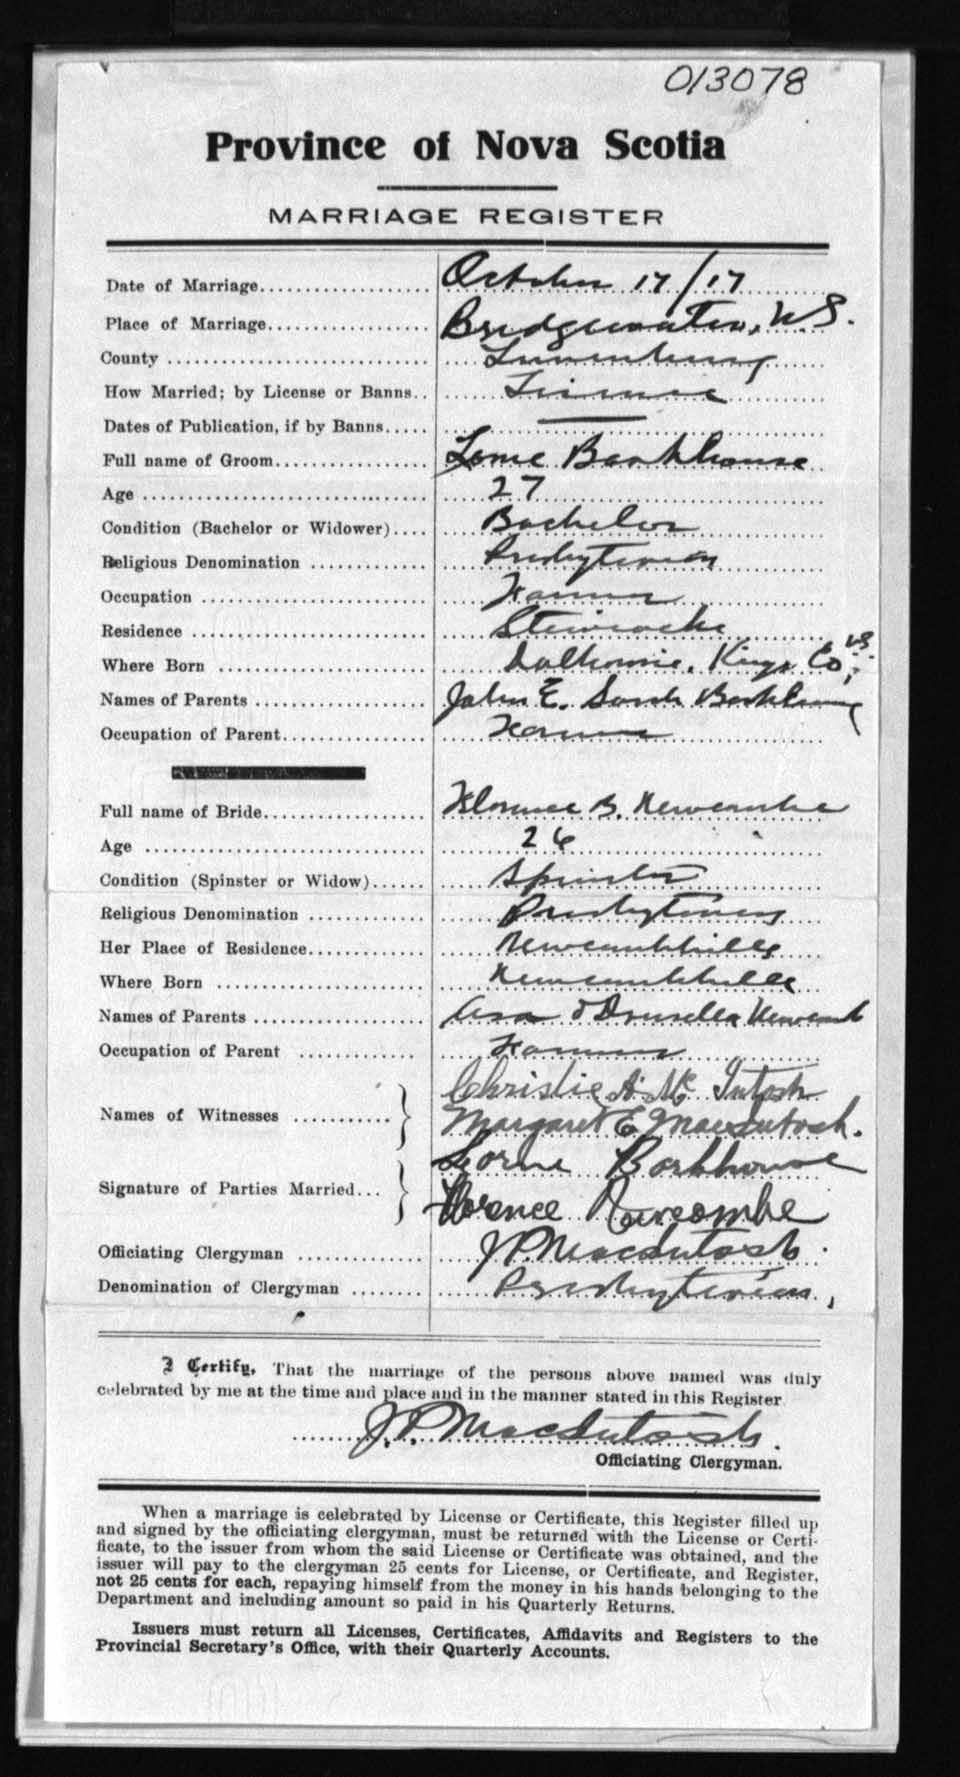 013078
Province of Nova Scotia
MARRIAGE REGISTER
Date of Marriage................... October 17/17
Place of Marriage.................. Bridgewater, N.S.
County ............................. Lunenburg
How Married; by License or Banns.. License
Dates of Publication, if by Banns..... —
Full name of Groom................. Lorne Barkhouse
Age ................................ 27
Condition (Bachelor or Widower).... Bachelor
Religious Denomination ............. Presbyterian
Occupation ......................... Farmer
Residence .......................... Stewiacke
Where Born ......................... Dalhousie, Kings Co., N.S.
Names of Parents ................... John E. Sarah Barkhouse
Occupation of Parent................ Farmer
Full name of Bride.................. Florence B. Newcombe
Age ................................ 26
Condition (Spinster or Widow)...... Spinster
Religious Denomination ............. Presbyterian
Her Place of Residence............. Newcombville
Where Born ......................... Newcombville
Names of Parents ................... Asa & Drusella Newcomb
Occupation of Parent ............... Farmer
Christie A. McIntosh
Names of Witnesses ........... } Margaret E. MacIntosh.
Lorne Barkhouse
Signature of Parties Married... } Florence Newcombe
Officiating Clergyman .............. J P MacIntosh.
Denomination of Clergyman ........ Presbyterian,
I Certify, That the marriage of the persons above named was duly
celebrated by me at the time and place and in the manner stated in this Register
J. P. MacIntosh.
Officiating Clergyman.
When a marriage is celebrated by License or Certificate, this Register filled up
and signed by the officiating clergyman, must be returned with the License or Certi-
ficate, to the issuer from whom the said License or Certificate was obtained, and the
issuer will pay to the clergyman 25 cents for License, or Certificate, and Register,
not 25 cents for each, repaying himself from the money in his hands belonging to the
Department and including amount so paid in his Quarterly Returns.
Issuers must return all Licenses, Certificates, Affidavits and Registers to the
Provincial Secretary's Office, with their Quarterly Accounts.